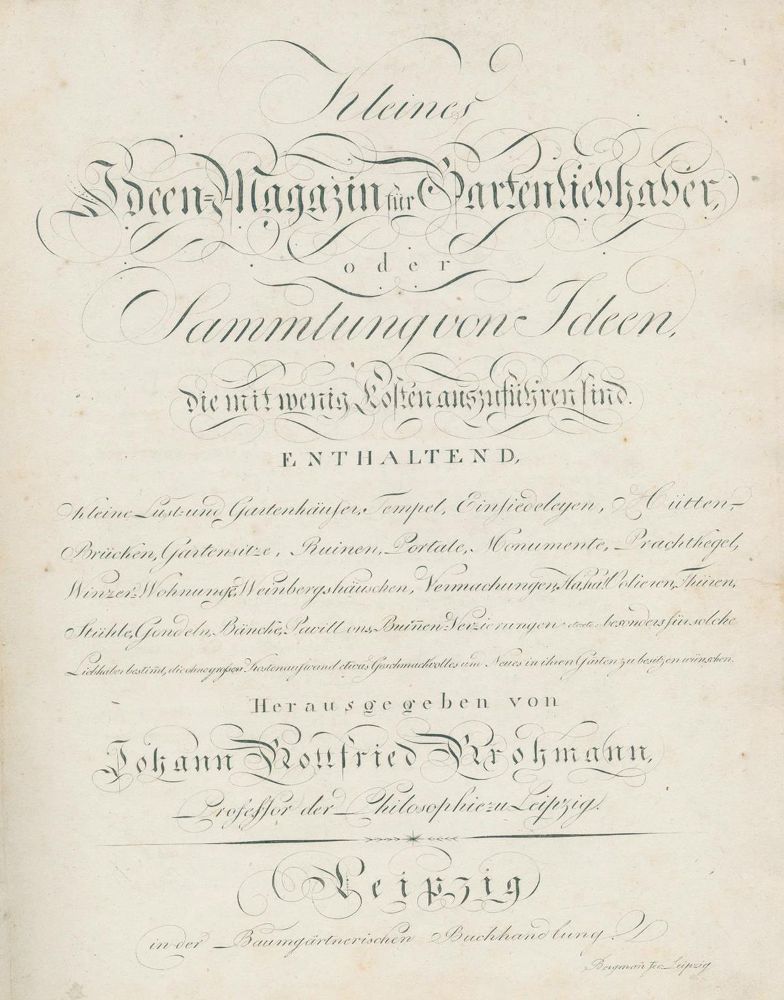 Kleines
Ideen=Magazin für Gartenliebhaber,
oder
Sammlung von Ideen,
die mit wenig Kosten auszuführen sind.
ENTHALTEND,
kleine Lust-und Gartenhäuser, Tempel, Einsiedeleyen, Hütten-
Brücken, Gartensitze, Ruinen, Portale, Monumente, Prachtkegel,
Winzer-Wohnungē, Weinbergshäuschen, Vermachungen, Haha! Volieren, Thüren,
Stühle, Gondeln, Bänckē, Pavillons, Bruñen-Verzierungen besonders für solche
Liebhaber bestim̄t, die ohne großen Kostenaufwand etwas Geschmackvolles und Neues in ihren Gärten zu besitzen wünschen.
Herausgegeben von
Johann Gottfried Grohmann,
Professor der Philosophie zu Leipzig.
Leipzig
in der Baumgärtnerischen Buchhandlung.
Bergman̄ fec. Leipzig